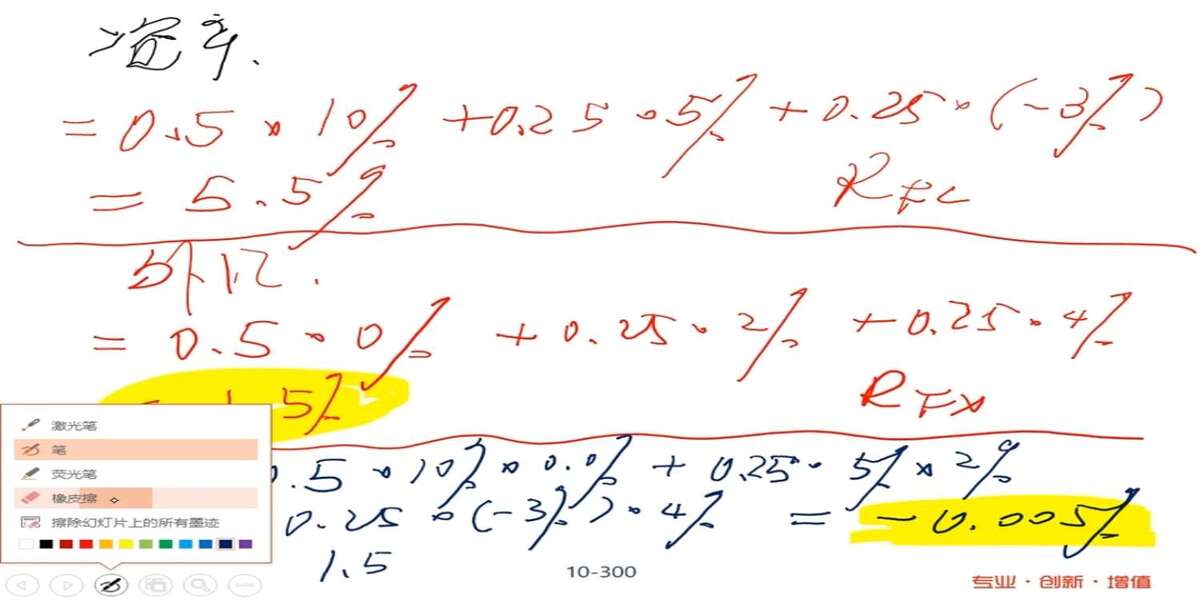 资产.
= 0.5 × 10% + 0.25 × 5% + 0.25 × (-3%)
= 5.5% R_FC
外汇.
= 0.5 × 0% + 0.25 × 2% + 0.25 × 4%
= 1.5% R_FX
0.5 × 10% × 0.0% + 0.25 × 5% × 2%
0.25 × (-3%) × 4% = -0.005%
1.5
激光笔
笔
荧光笔
橡皮擦
擦除幻灯片上的所有墨迹
10-300
专业·创新·增值